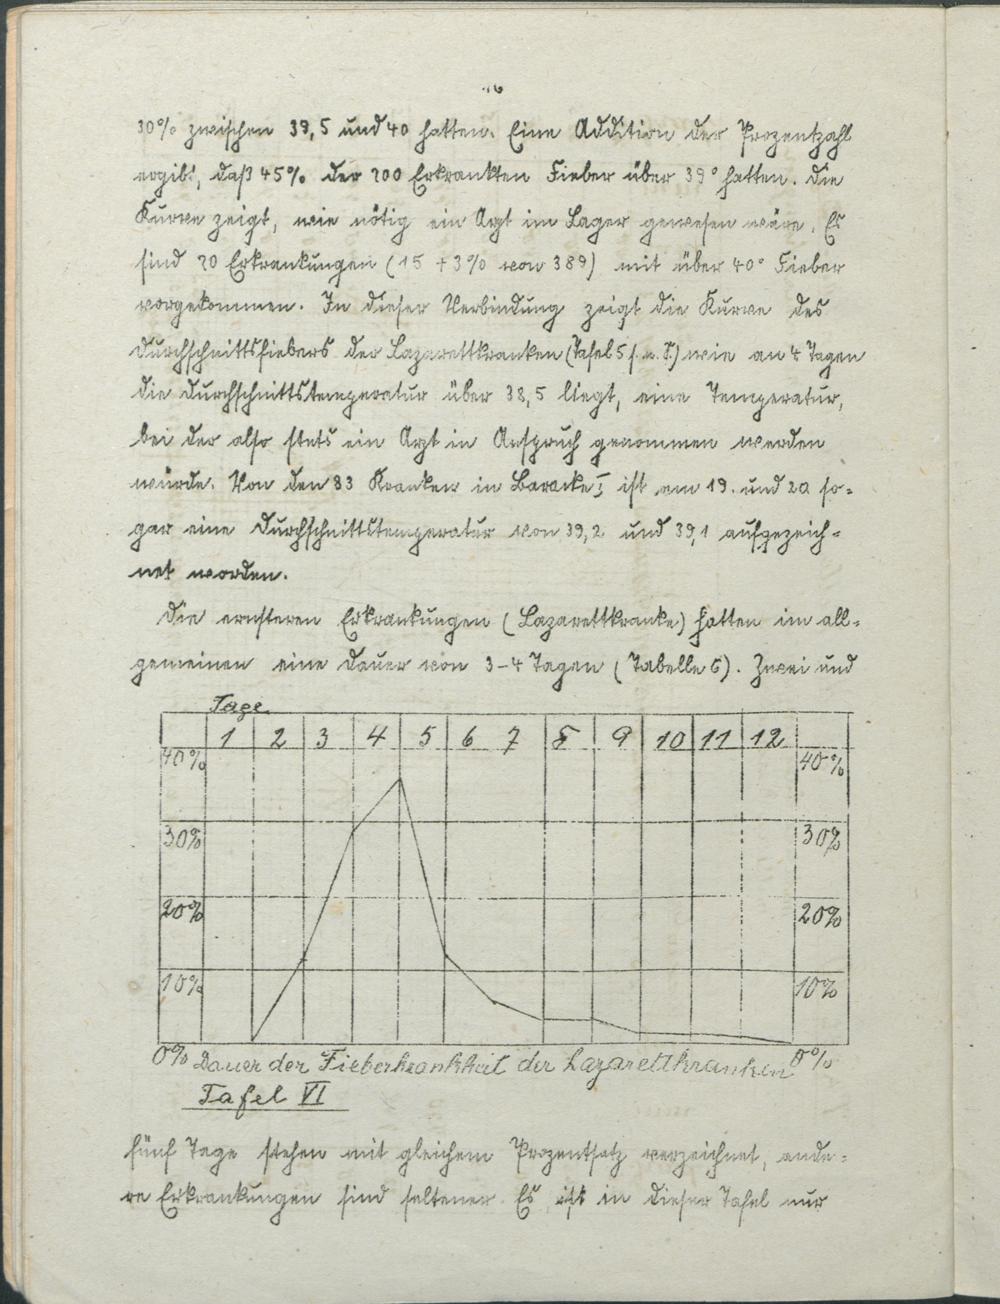 30% zwischen 39,5 und 40 hatten. Eine Addition der Prozentzahl
ergibt, daß 45% der 200 Erkrankten Fieber über 39° hatten. Die
Kurve zeigt, wie nötig ein Arzt im Lager gewesen wäre. Es
sind 70 Erkrankungen (15 + 3% von 389) mit über 40° Fieber
vorgekommen. In dieser Verbindung zeigt die Kurve des
Durchschnittsfiebers der Lazarettkranken (Tafel 5 f. u. S.) wie an 4 Tagen
die Durchschnittstemperatur über 38,5 liegt, eine Temperatur,
bei der also stets ein Arzt in Anspruch genommen werden
würde. Von den 83 Kranken in Baracke I ist am 19. und 20 so-
gar eine Durchschnittstemperatur von 39,2 und 39,1 aufgezeich-
net worden.
Die ernsteren Erkrankungen (Lazarettkranke) hatten im all-
gemeinen eine Dauer von 3-4 Tagen (Tabelle 6). Zwei und
Tage
1 2 3 4 5 6 7 8 9 10 11 12
40% 40%
30% 30%
20% 20%
10% 10%
0% Dauer der Fieberkrankheit der Lazarettkranken 0%
Tafel VI
fünf Tage stehen mit gleichem Prozentsatz verzeichnet, ande-
re Erkrankungen sind seltener. Es ist in dieser Tafel nur